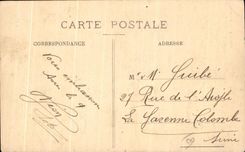 CARTE POSTALE
CORRESPONDANCE
ADRESSE
Vous embrasse
M. M. Guibé
27 Rue de l'Aigle
La Garenne Colombe
Seine